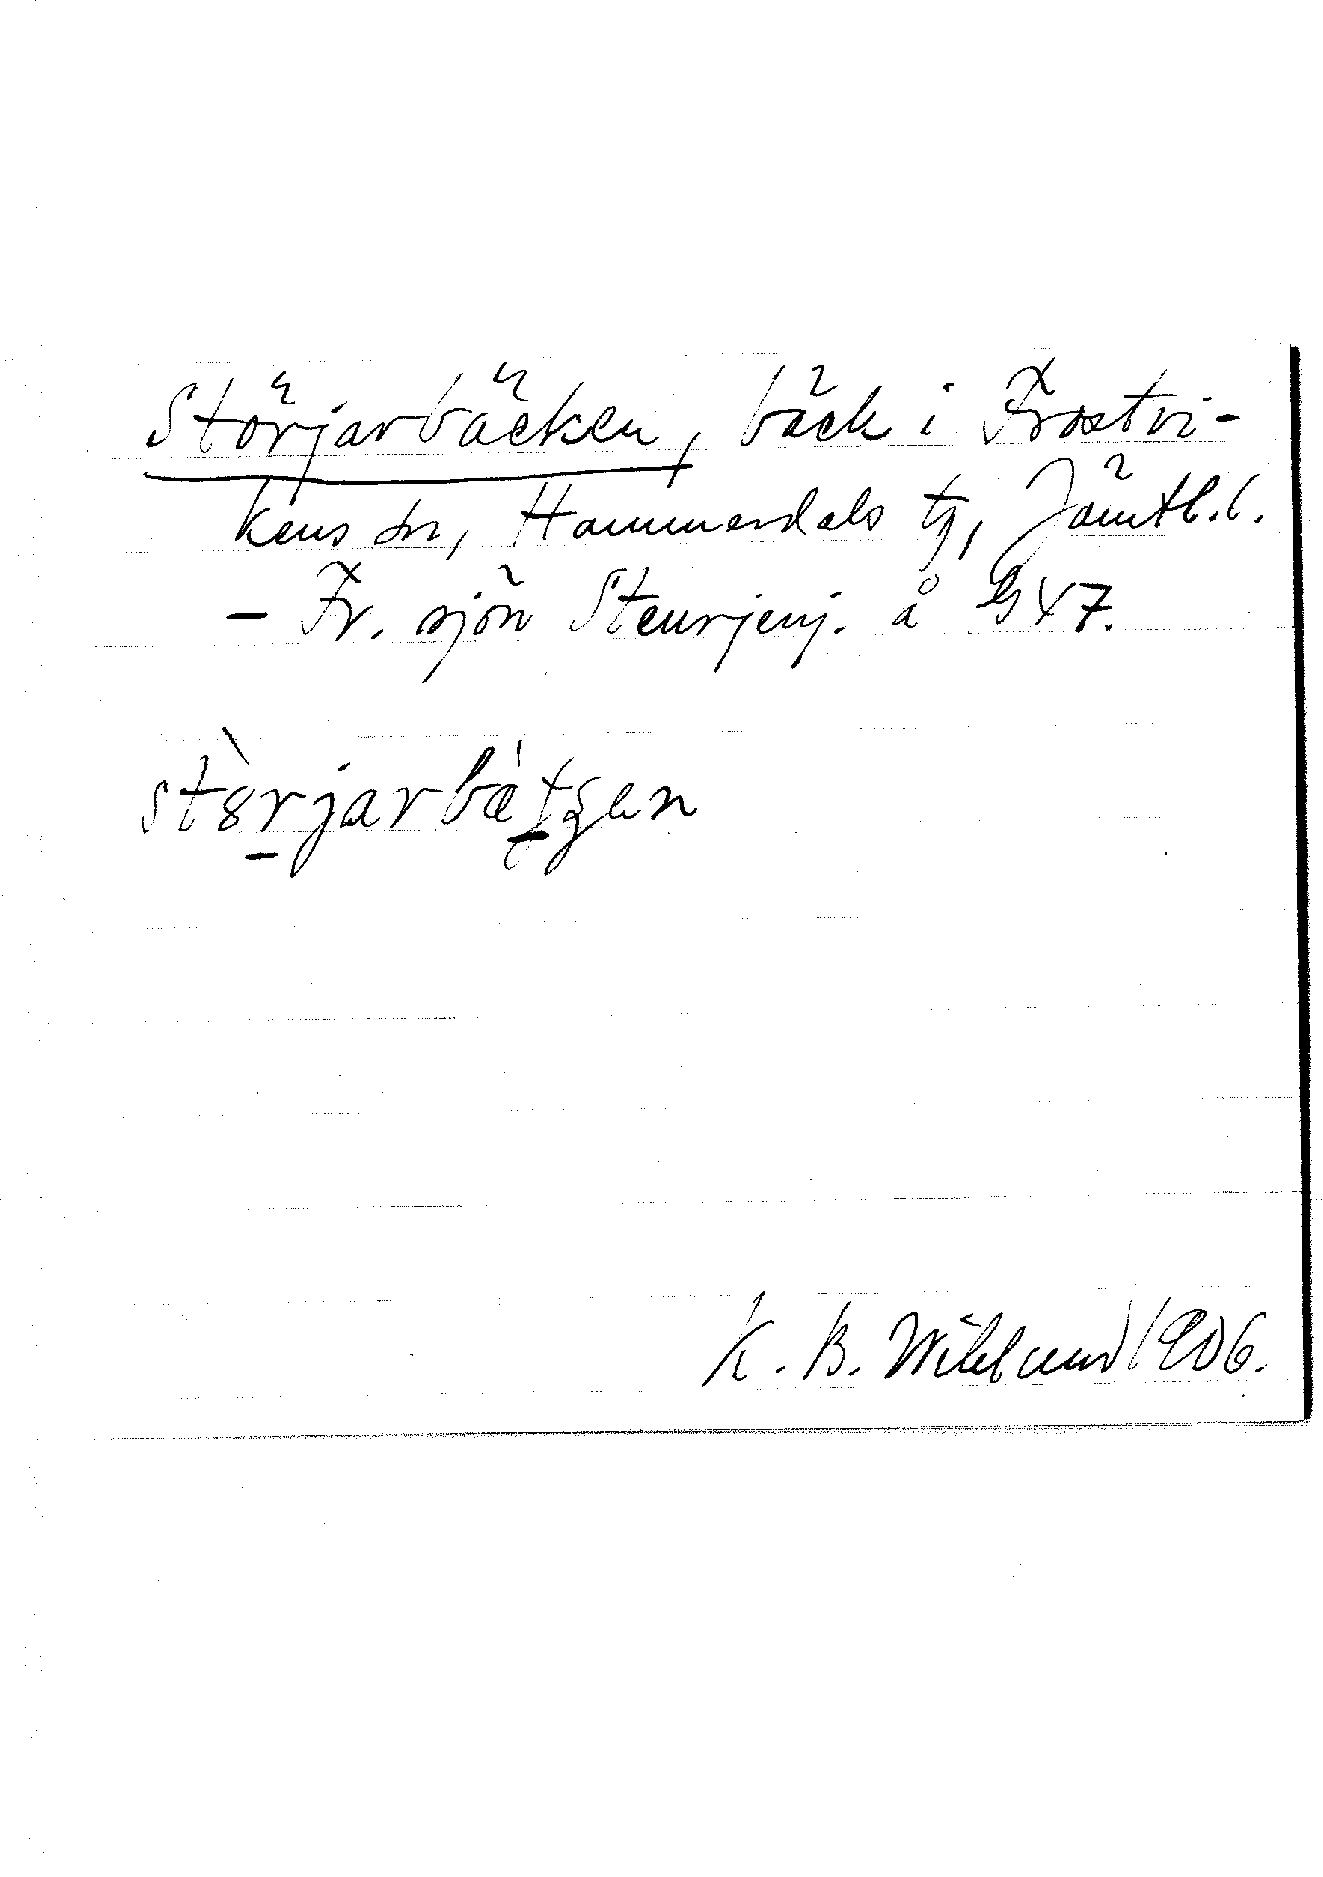 Störjarbäcken, bäck i Frostvi-
kens sn, Hammerdals tg, Jämtl. l.
- Fr. sjön Steurjenj. å G 47.
stòrjarbætʒen
K. B. Wiklund 1906.